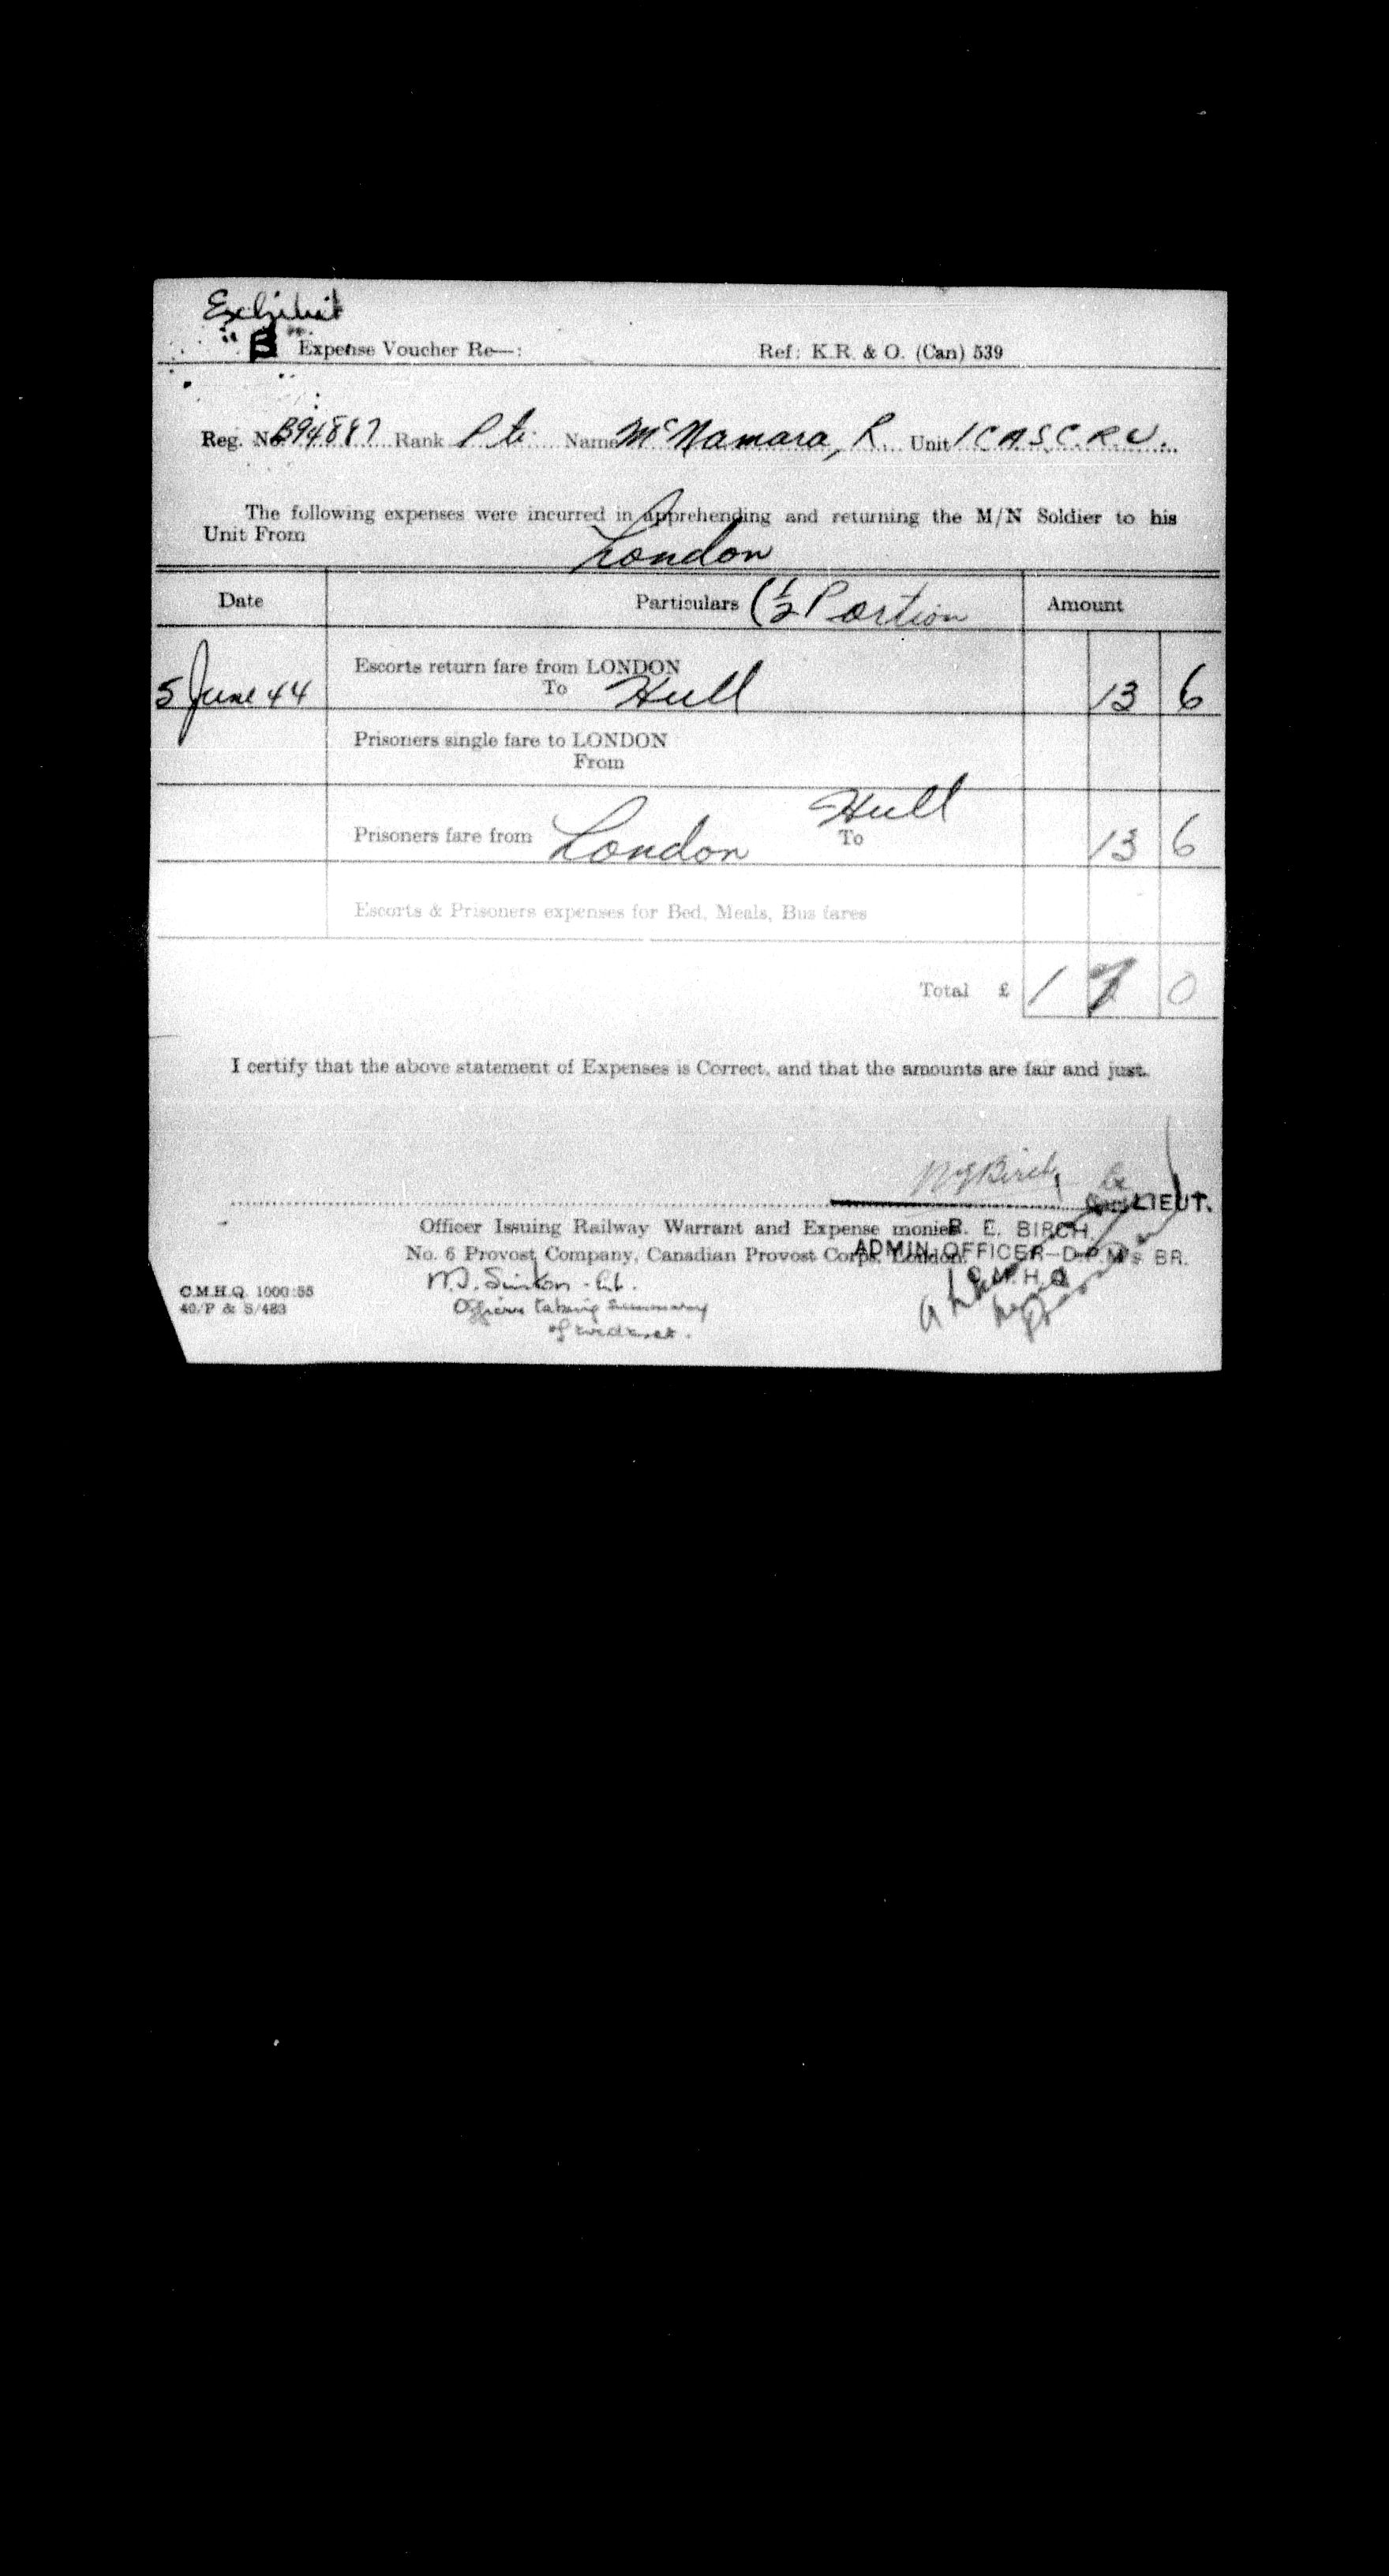 Exhibit
"B"
Expense Voucher Re—: Ref: K.R. & O. (Can) 539
Reg. No. B94887 Rank Pte. Name McNamara, R. Unit 1 C A S C. R. U.
The following expenses were incurred in apprehending and returning the M/N Soldier to his
Unit From London
Date Particulars (1/2 Portion Amount
5 June 44 Escorts return fare from LONDON
To Hull 13 6
Prisoners single fare to LONDON
From
Prisoners fare from London To Hull 13 6
Escorts & Prisoners expenses for Bed, Meals, Bus fares
Total £ 1 7 0
I certify that the above statement of Expenses is Correct, and that the amounts are fair and just.
Birch
LIEUT.
Officer Issuing Railway Warrant and Expense monies.
R. E. BIRCH
No. 6 Provost Company, Canadian Provost Corps, London.
ADMIN. OFFICER—D.P.M's BR.
C.M.H.Q.
Officer taking summary
of evidence.
C.M.H.Q. 1000:55
40/P & S/483